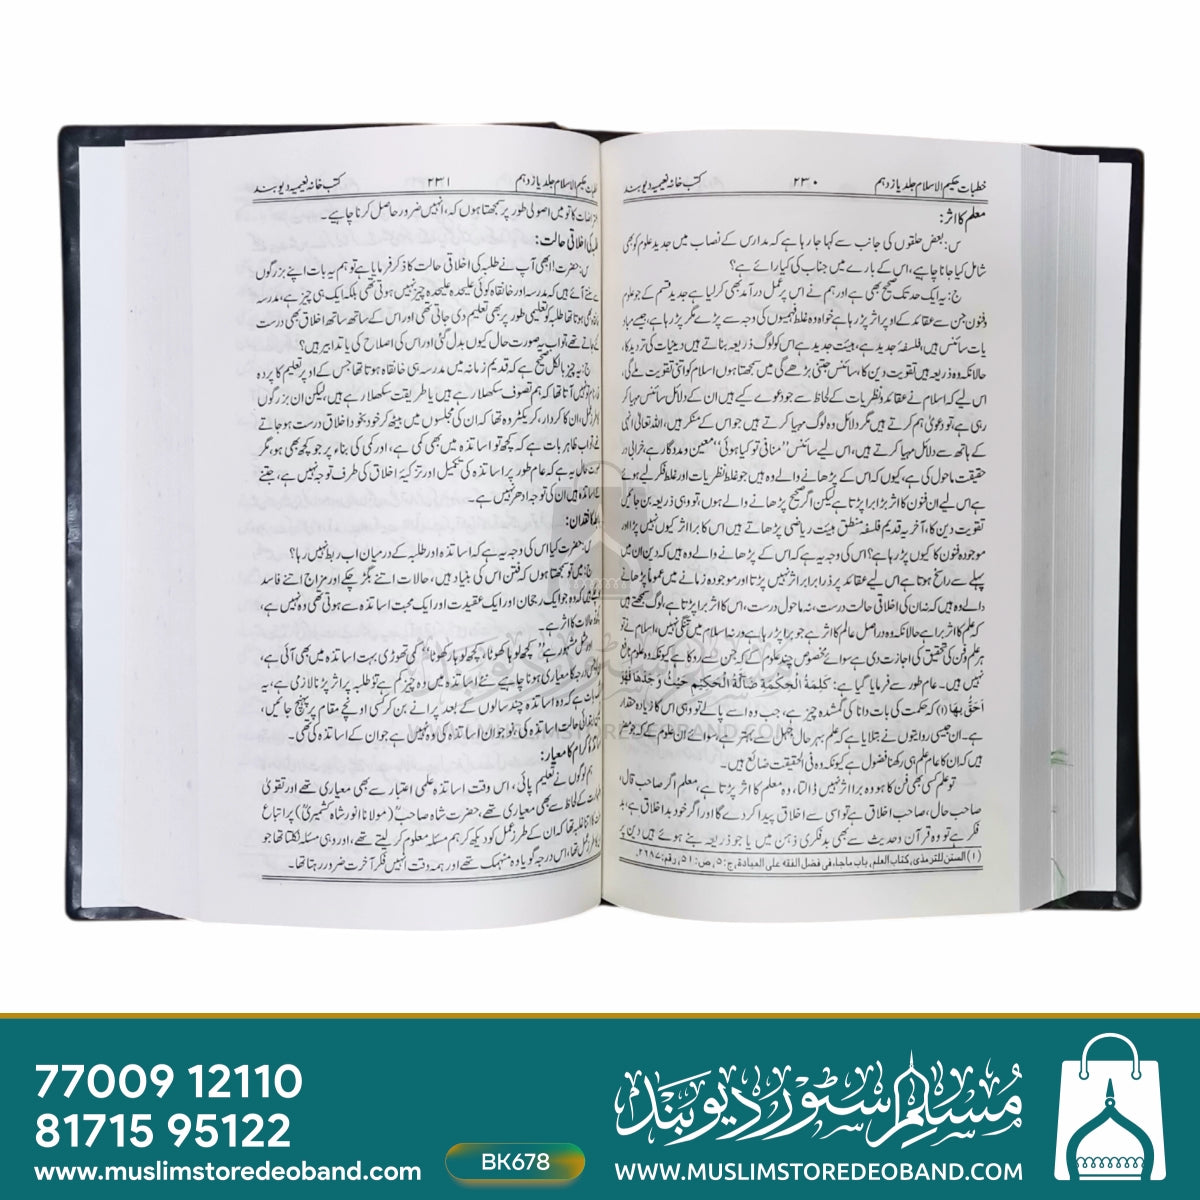 خطبات حکیم الاسلام جلد یازدہم ۲۳۰ کتب خانہ نعیمیہ دیوبند
معلم کا اثر:
س: بعض حلقوں کی جانب سے کہا جا رہا ہے کہ مدارس کے نصاب میں جدید علوم کو بھی
شامل کیا جانا چاہیے، اس کے بارے میں جناب کی کیا رائے ہے؟
ج: یہ ایک حد تک صحیح بھی ہے اور ہم نے اس پر عمل درآمد بھی کر لیا ہے جدید قسم کے جو علوم
وفنون جن سے عقائد کے اوپر اثر پڑ رہا ہے خواہ وہ غلط فہمیوں کی وجہ سے پڑے مگر پڑ رہا ہے، جیسے مباد
یات سائنس ہیں، فلسفۂ جدید ہے، ہیئت جدید ہے اس کو لوگ ذریعہ بناتے ہیں دینیات کی تردید کا،
حالانکہ وہ ذریعہ ہیں تقویت دین کا، سائنس جتنی بڑھے گی میں سمجھتا ہوں اسلام کو اتنی تقویت ملے گی،
اس لیے کہ اسلام نے عقائد و نظریات کے لحاظ سے جو دعوے کیے ہیں ان کے دلائل سائنس مہیا کر
رہی ہے، تو دعویٰ ہم کرتے ہیں مگر دلائل وہ لوگ مہیا کرتے ہیں جو اس کے منکر ہیں، اللہ تعالیٰ انہی
کے ہاتھ سے دلائل مہیا کرتے ہیں، اس لیے سائنس ”منافی تو کیا ہوئی“ معین و مددگار ہے، خرابی در
حقیقت ماحول کی ہے، کیوں کہ اس کے پڑھانے والے وہ ہیں جو غلط نظریات اور غلط فکر لیے ہوئے
ہے اس لیے ان فنون کا اثر بڑا برا پڑتا ہے لیکن اگر صحیح پڑھانے والے ہوں، تو وہی ذریعہ بن جائیں
تقویت دین کا، آخر یہ قدیم فلسفہ منطق ہیئت ریاضی پڑھاتے ہیں اس کا برا اثر کیوں نہیں پڑا اور
موجودہ فنون کا کیوں پڑ رہا ہے؟ اس کی وجہ یہ ہے کہ اس کے پڑھانے والے وہ ہیں کہ دین ان میں
پہلے سے راسخ ہوتا ہے اس لیے عقائد پر ذرا برابر اثر نہیں پڑتا اور موجودہ زمانے میں عموماً پڑھانے
والے وہ ہیں کہ نہ ان کی اخلاقی حالت درست، نہ ماحول درست، اس کا اثر برا پڑتا ہے، لوگ سمجھتے ہیں
کہ علم کا اثر برا ہے حالانکہ وہ دراصل عالم کا اثر ہے جو برا پڑ رہا ہے ورنہ اسلام میں تنگی نہیں، اسلام نے تو
ہر علم و فن کی تحقیق کی اجازت دی ہے سوائے مخصوص چند علوم کے کہ جن سے روکا ہے کیونکہ وہ علوم نافع
نہیں ہیں۔ عام طور سے فرمایا گیا ہے: کَلِمَةُ الْحِکْمَةِ ضَالَّةُ الْحَکِیْمِ حَیْثُ وَجَدَهَا فَهُوَ
اَحَقُّ بِهَا (۱) کہ حکمت کی بات دانا کی گمشدہ چیز ہے، جب وہ اسے پالے تو وہی اس کا زیادہ حقدار
ہے۔ ان جیسی روایتوں نے بتلایا ہے کہ علم بہر حال جہل سے بہتر ہے، سوائے ان علوم کے کہ جو مضر
ہیں کہ ان کا عام علم ہی رکھنا فضول ہے کیونکہ وہ فی الحقیقت ضائع ہیں۔
تو علم کسی بھی فن کا ہو وہ برا اثر نہیں ڈالتا، وہ معلم کا اثر پڑتا ہے، معلم اگر صاحب قال،
صاحب حال، صاحب اخلاق ہے تو اسی سے اخلاق پیدا کر دے گا اور اگر خود بد اخلاق ہے، بد
فکر ہے تو وہ قرآن و حدیث سے بھی بدفکری ذہن میں یا جو ذریعہ بنے ہوئے ہیں دین پر
(۱) السنن للترمذی، کتاب العلم، باب ماجاء فی فضل الفقه علی العبادة، ج: ۵، ص: ۵۱، رقم: ۲۶۸۷۔
حکیم الاسلام جلد یازدہم ۲۳۱ کتب خانہ نعیمیہ دیوبند
کا تو میں اصولی طور پر سمجھتا ہوں کہ، انہیں ضرور حاصل کرنا چاہیے۔
کی اخلاقی حالت:
س: حضرت! ابھی آپ نے طلبہ کی اخلاقی حالت کا ذکر فرمایا ہے تو ہم یہ بات اپنے بزرگوں
سنتے آئے ہیں کہ مدرسہ اور خانقاہ کوئی علیحدہ علیحدہ چیز نہیں ہوتی تھی بلکہ ایک ہی چیز ہے، مدرسہ
ہوتا تھا طلبہ کو تعلیمی طور پر بھی تعلیم دی جاتی تھی اور اس کے ساتھ ساتھ اخلاق بھی درست
جاتے تھے تو اب یہ صورت حال کیوں بدل گئی اور اس کی اصلاح کی یا تدابیر ہیں؟
ج: یہ چیز بالکل صحیح ہے کہ قدیم زمانہ میں مدرسہ ہی خانقاہ ہوتا تھا جس کے اوپر تعلیم کا پردہ
نہیں آتا تھا کہ ہم تصوف سکھلا رہے ہیں یا طریقت سکھلا رہے ہیں، لیکن ان بزرگوں
ان کا کردار، کریکٹر وہ تھا کہ ان کی مجلسوں میں بیٹھ کر خود بخود اخلاق درست ہو جاتے
اب ظاہر بات ہے کہ کچھ تو اساتذہ میں بھی کمی ہے، اور کمی کی بناء پر جو کچھ بھی ہو، مگر
حال یہ ہے کہ عام طور پر اساتذہ کی تکمیل اور تزکیۂ اخلاق کی طرف توجہ نہیں ہے، جتنے
اساتذہ ہیں ان کی توجہ ادھر نہیں ہے۔
کا فقدان:
س: حضرت کیا اس کی وجہ یہ ہے کہ اساتذہ اور طلبہ کے درمیان اب ربط نہیں رہا؟
ج: میں تو سمجھتا ہوں کہ فتن اس کی بنیاد ہیں، حالات اتنے بگڑ چکے اور مزاج اتنے فاسد
کہ وہ جو ایک رجحان اور ایک عقیدت اور ایک محبت اساتذہ سے ہوتی تھی وہ نہیں ہے،
حالات کا اثر ہے۔
مثل مشہور ہے ”کچھ لوہا کھوٹا، کچھ لوہار کھوٹا“ کمی تھوڑی بہت اساتذہ میں بھی آئی ہے،
درجہ کا معیاری ہونا چاہیے نئے اساتذہ میں وہ چیز کم ہے تو طلبہ پر اثر پڑنا لازمی ہے، یہ
بات ہے کہ وہ اساتذہ چند سالوں کے بعد پرانے بن کر کسی اونچے مقام پر پہنچ جائیں،
حالت اساتذہ کی، نوجوان اساتذہ کی وہ نہیں ہے جو ان کے اساتذہ کی تھی۔
کرام کا معیار:
ہم لوگوں نے تعلیم پائی، اس وقت اساتذہ علمی اعتبار سے بھی معیاری تھے اور تقویٰ
کے لحاظ سے بھی معیاری تھے، حضرت شاہ صاحبؒ (مولانا انور شاہ کشمیریؒ) پر اتباع
اتنا غلبہ تھا کہ ان کے طرز عمل کو دیکھ کر ہم مسئلہ معلوم کر لیتے تھے، اور وہی مسئلہ نکلتا تھا جو
عمل تھا، اس درجہ گویا وہ منہمک تھے اور ہمہ وقت انہیں فکر آخرت ضرور رہتا تھا۔
مسلم سٹور دیوبند
WWW.MUSLIMSTOREDEOBAND.COM
77009 12110
81715 95122
www.muslimstoredeoband.com
BK678
مسلم سٹور دیوبند
WWW.MUSLIMSTOREDEOBAND.COM